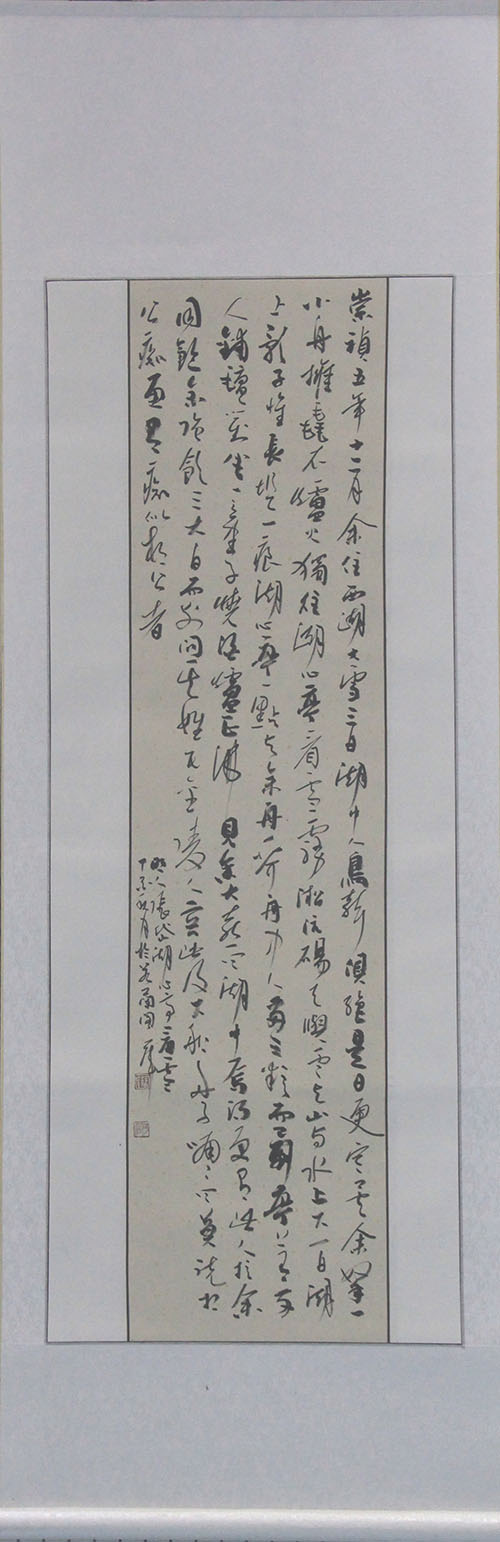 崇禎五年十二月余住西湖大雪三日湖中人鳥聲俱絕是日更定矣余拏一
小舟擁毳衣爐火獨往湖心亭看雪霧淞沆碭天與雲與山與水上下一白湖
上影子惟長堤一痕湖心亭一點與余舟一芥舟中人兩三粒而已到亭上有兩
人鋪氈對坐一童子燒酒爐正沸見余大喜曰湖中焉得更有此人拉余
同飲余強飲三大白而別問其姓氏是金陵人客此及下船舟子喃喃曰莫說相
公癡更有癡似相公者
明人張岱湖心亭看雪
丁亥秋月於